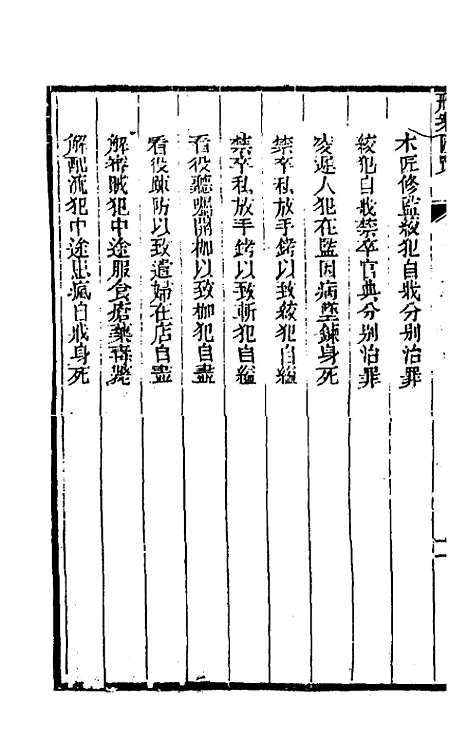 木匠修監絞犯自戕分別治罪
絞犯自戕禁卒官典分別治罪
凌遲人犯在監因病墊鍊身死
禁卒私放手銬以致絞犯自縊
禁卒私放手銬以致斬犯自縊
看役聽囑開枷以致枷犯自盡
看役疎防以致遣婦在店自盡
解審賊犯中途服食瘡藥毒斃
解配流犯中途患瘋自戕身死